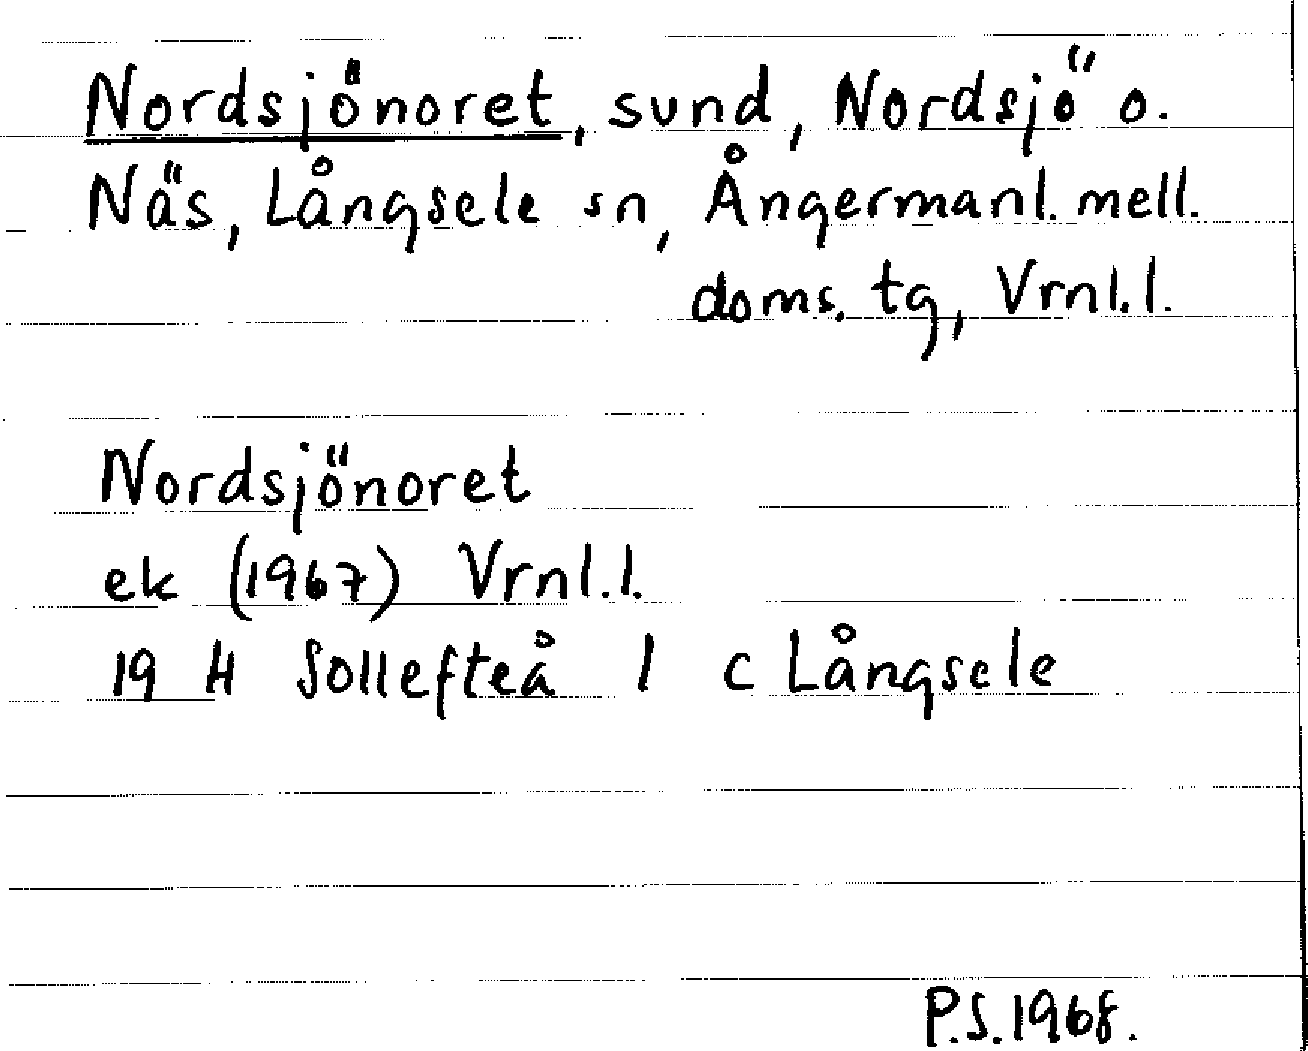 Nordsjönoret, sund, Nordsjö o.
Näs, Långsele sn, Ångermanl. mell.
doms. tg, Vrnl. l.
Nordsjönoret
ek (1967) Vrnl. l.
19 H Sollefteå 1 c Långsele
P.S. 1968.